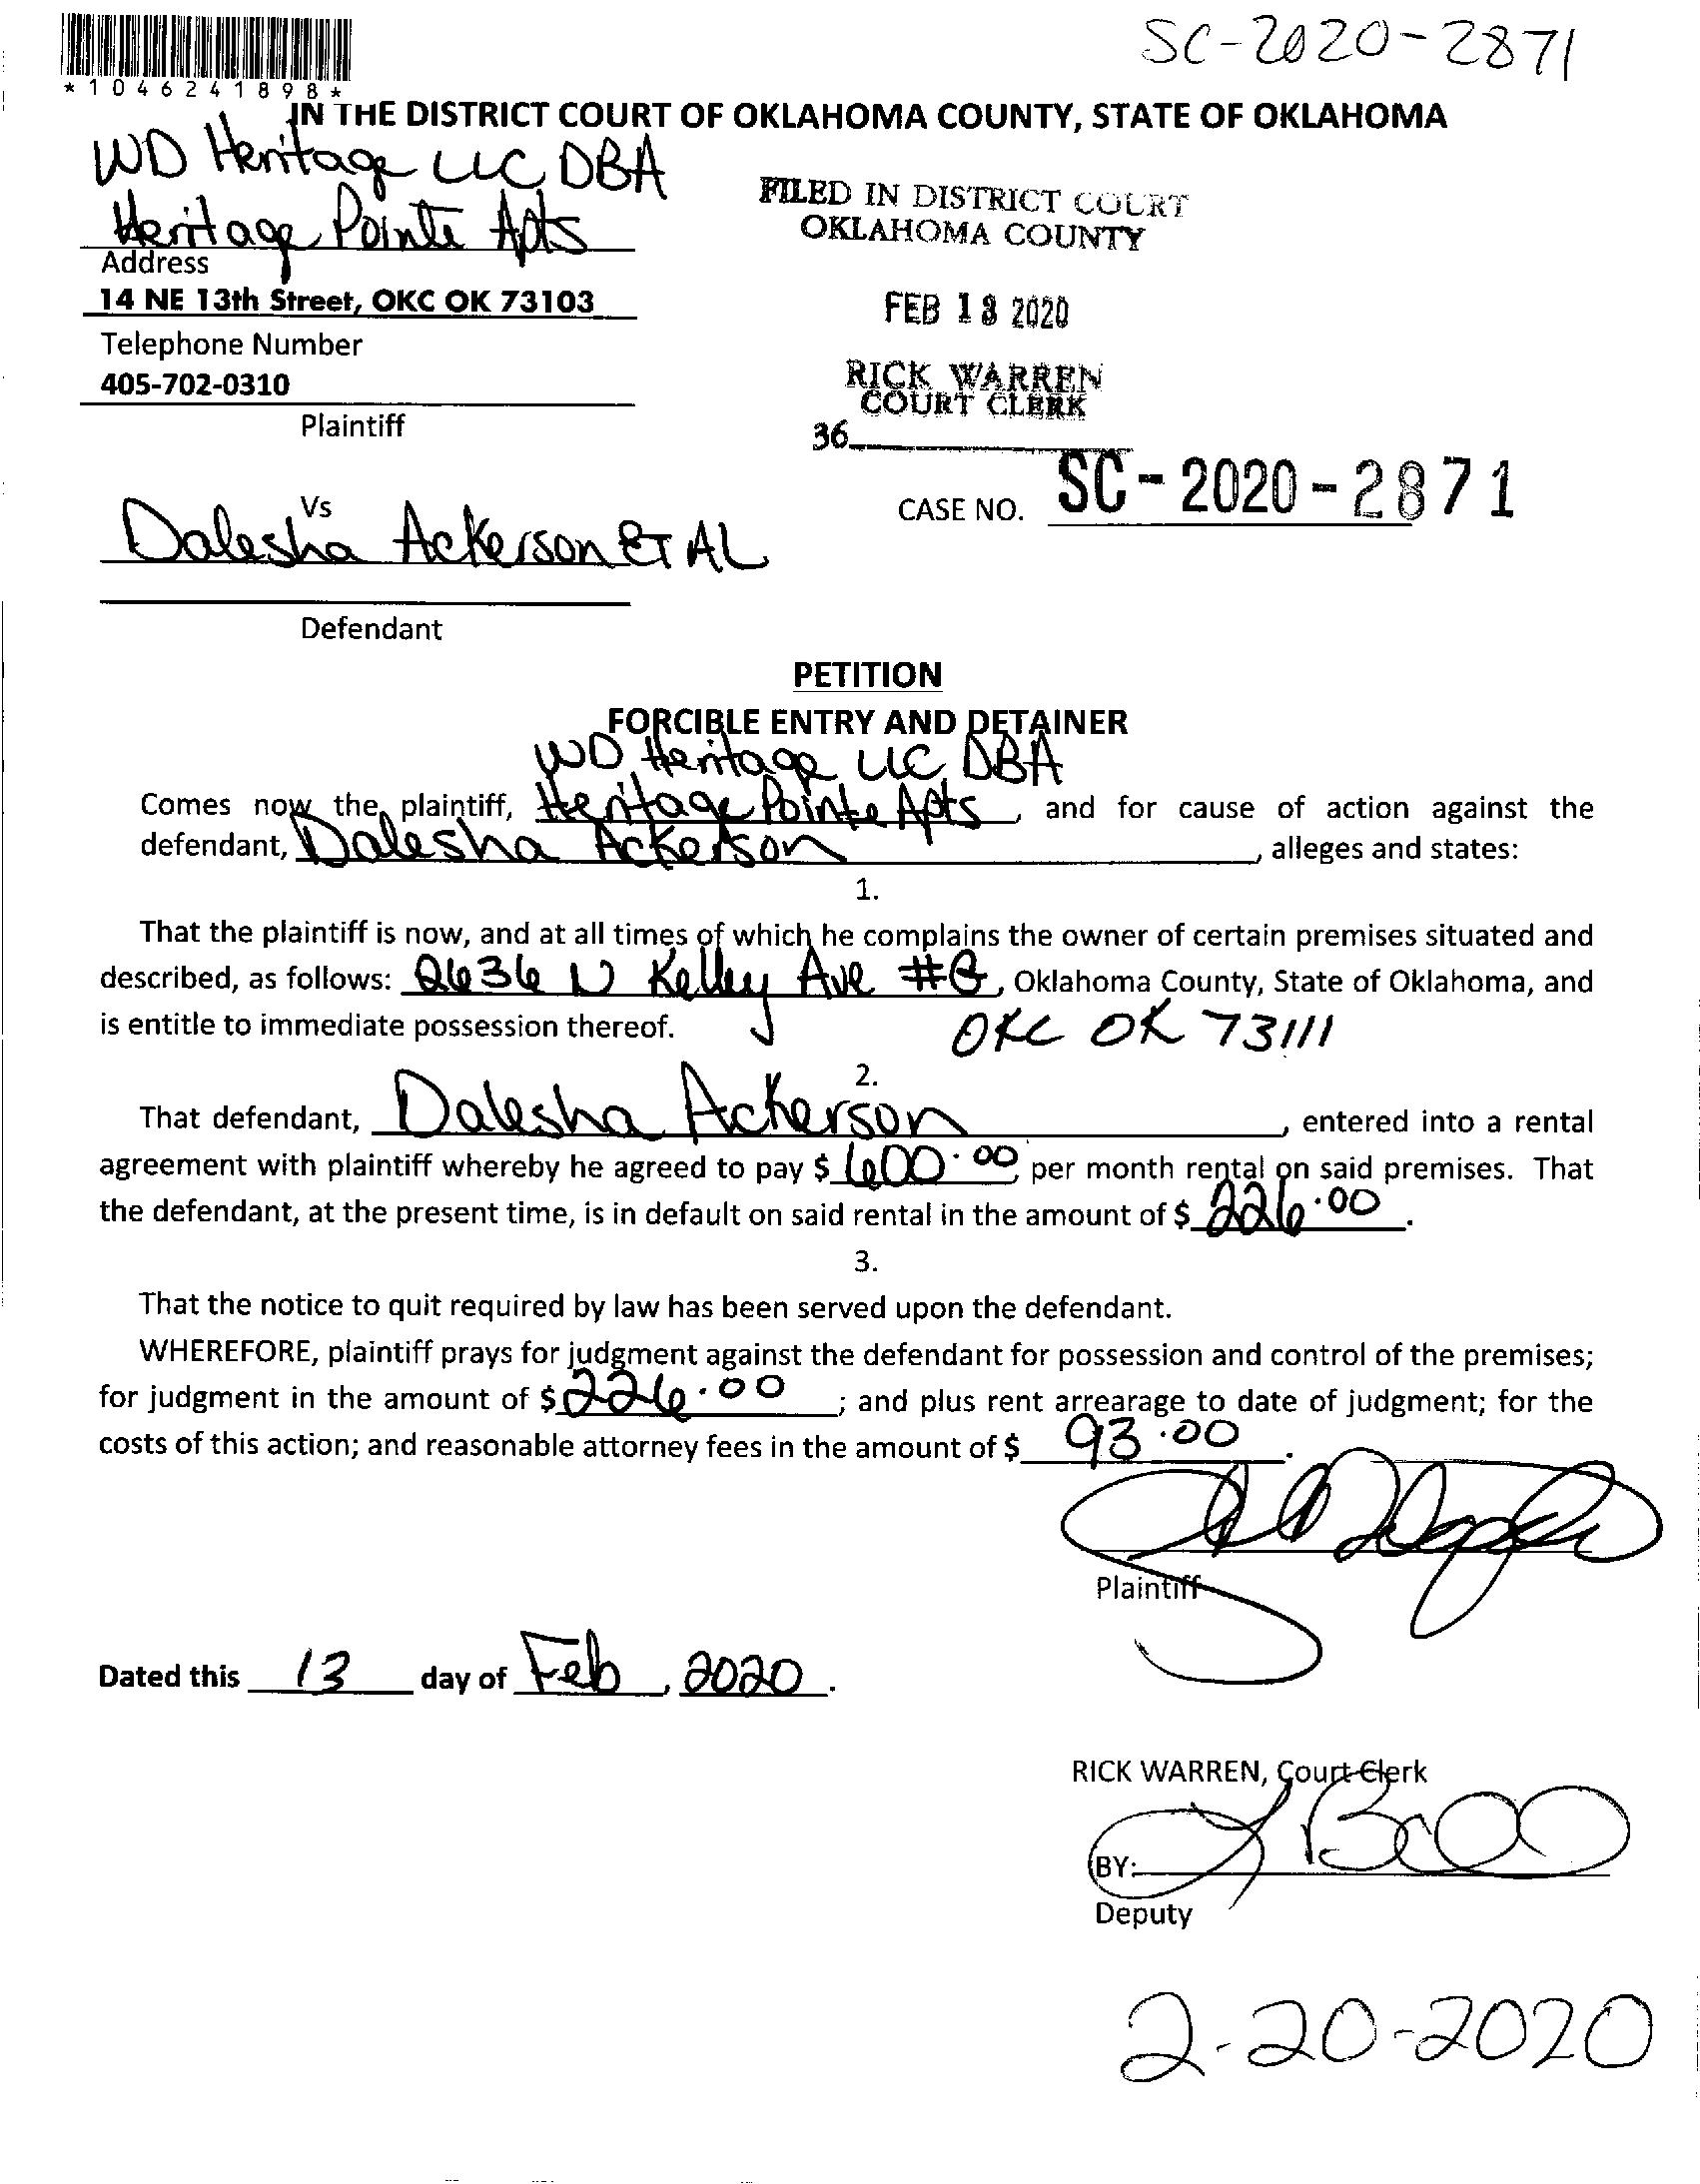 SC-2020-2871
*1046241898*
IN THE DISTRICT COURT OF OKLAHOMA COUNTY, STATE OF OKLAHOMA
WD Heritage LLC DBA
Heritage Pointe Apts
Address
14 NE 13th Street, OKC OK 73103
Telephone Number
405-702-0310
Plaintiff
FILED IN DISTRICT COURT
OKLAHOMA COUNTY
FEB 13 2020
RICK WARREN
COURT CLERK
36
CASE NO. SC-2020-2871
Vs
Dalesha Ackerson ET AL
Defendant
PETITION
FORCIBLE ENTRY AND DETAINER
WD Heritage LLC DBA
Comes now the plaintiff, Heritage Pointe Apts, and for cause of action against the
defendant, Dalesha Ackerson, alleges and states:
1.
That the plaintiff is now, and at all times of which he complains the owner of certain premises situated and
described, as follows: 2636 N Kelley Ave #, Oklahoma County, State of Oklahoma, and
is entitle to immediate possession thereof. OKC OK 73111
2.
That defendant, Dalesha Ackerson, entered into a rental
agreement with plaintiff whereby he agreed to pay $ 600.00 per month rental on said premises. That
the defendant, at the present time, is in default on said rental in the amount of $ 226.00.
3.
That the notice to quit required by law has been served upon the defendant.
WHEREFORE, plaintiff prays for judgment against the defendant for possession and control of the premises;
for judgment in the amount of $ 226.00; and plus rent arrearage to date of judgment; for the
costs of this action; and reasonable attorney fees in the amount of $ 93.00.
Plaintiff
Dated this 13 day of Feb, 2020.
RICK WARREN, Court Clerk
BY:
Deputy
2-20-2020